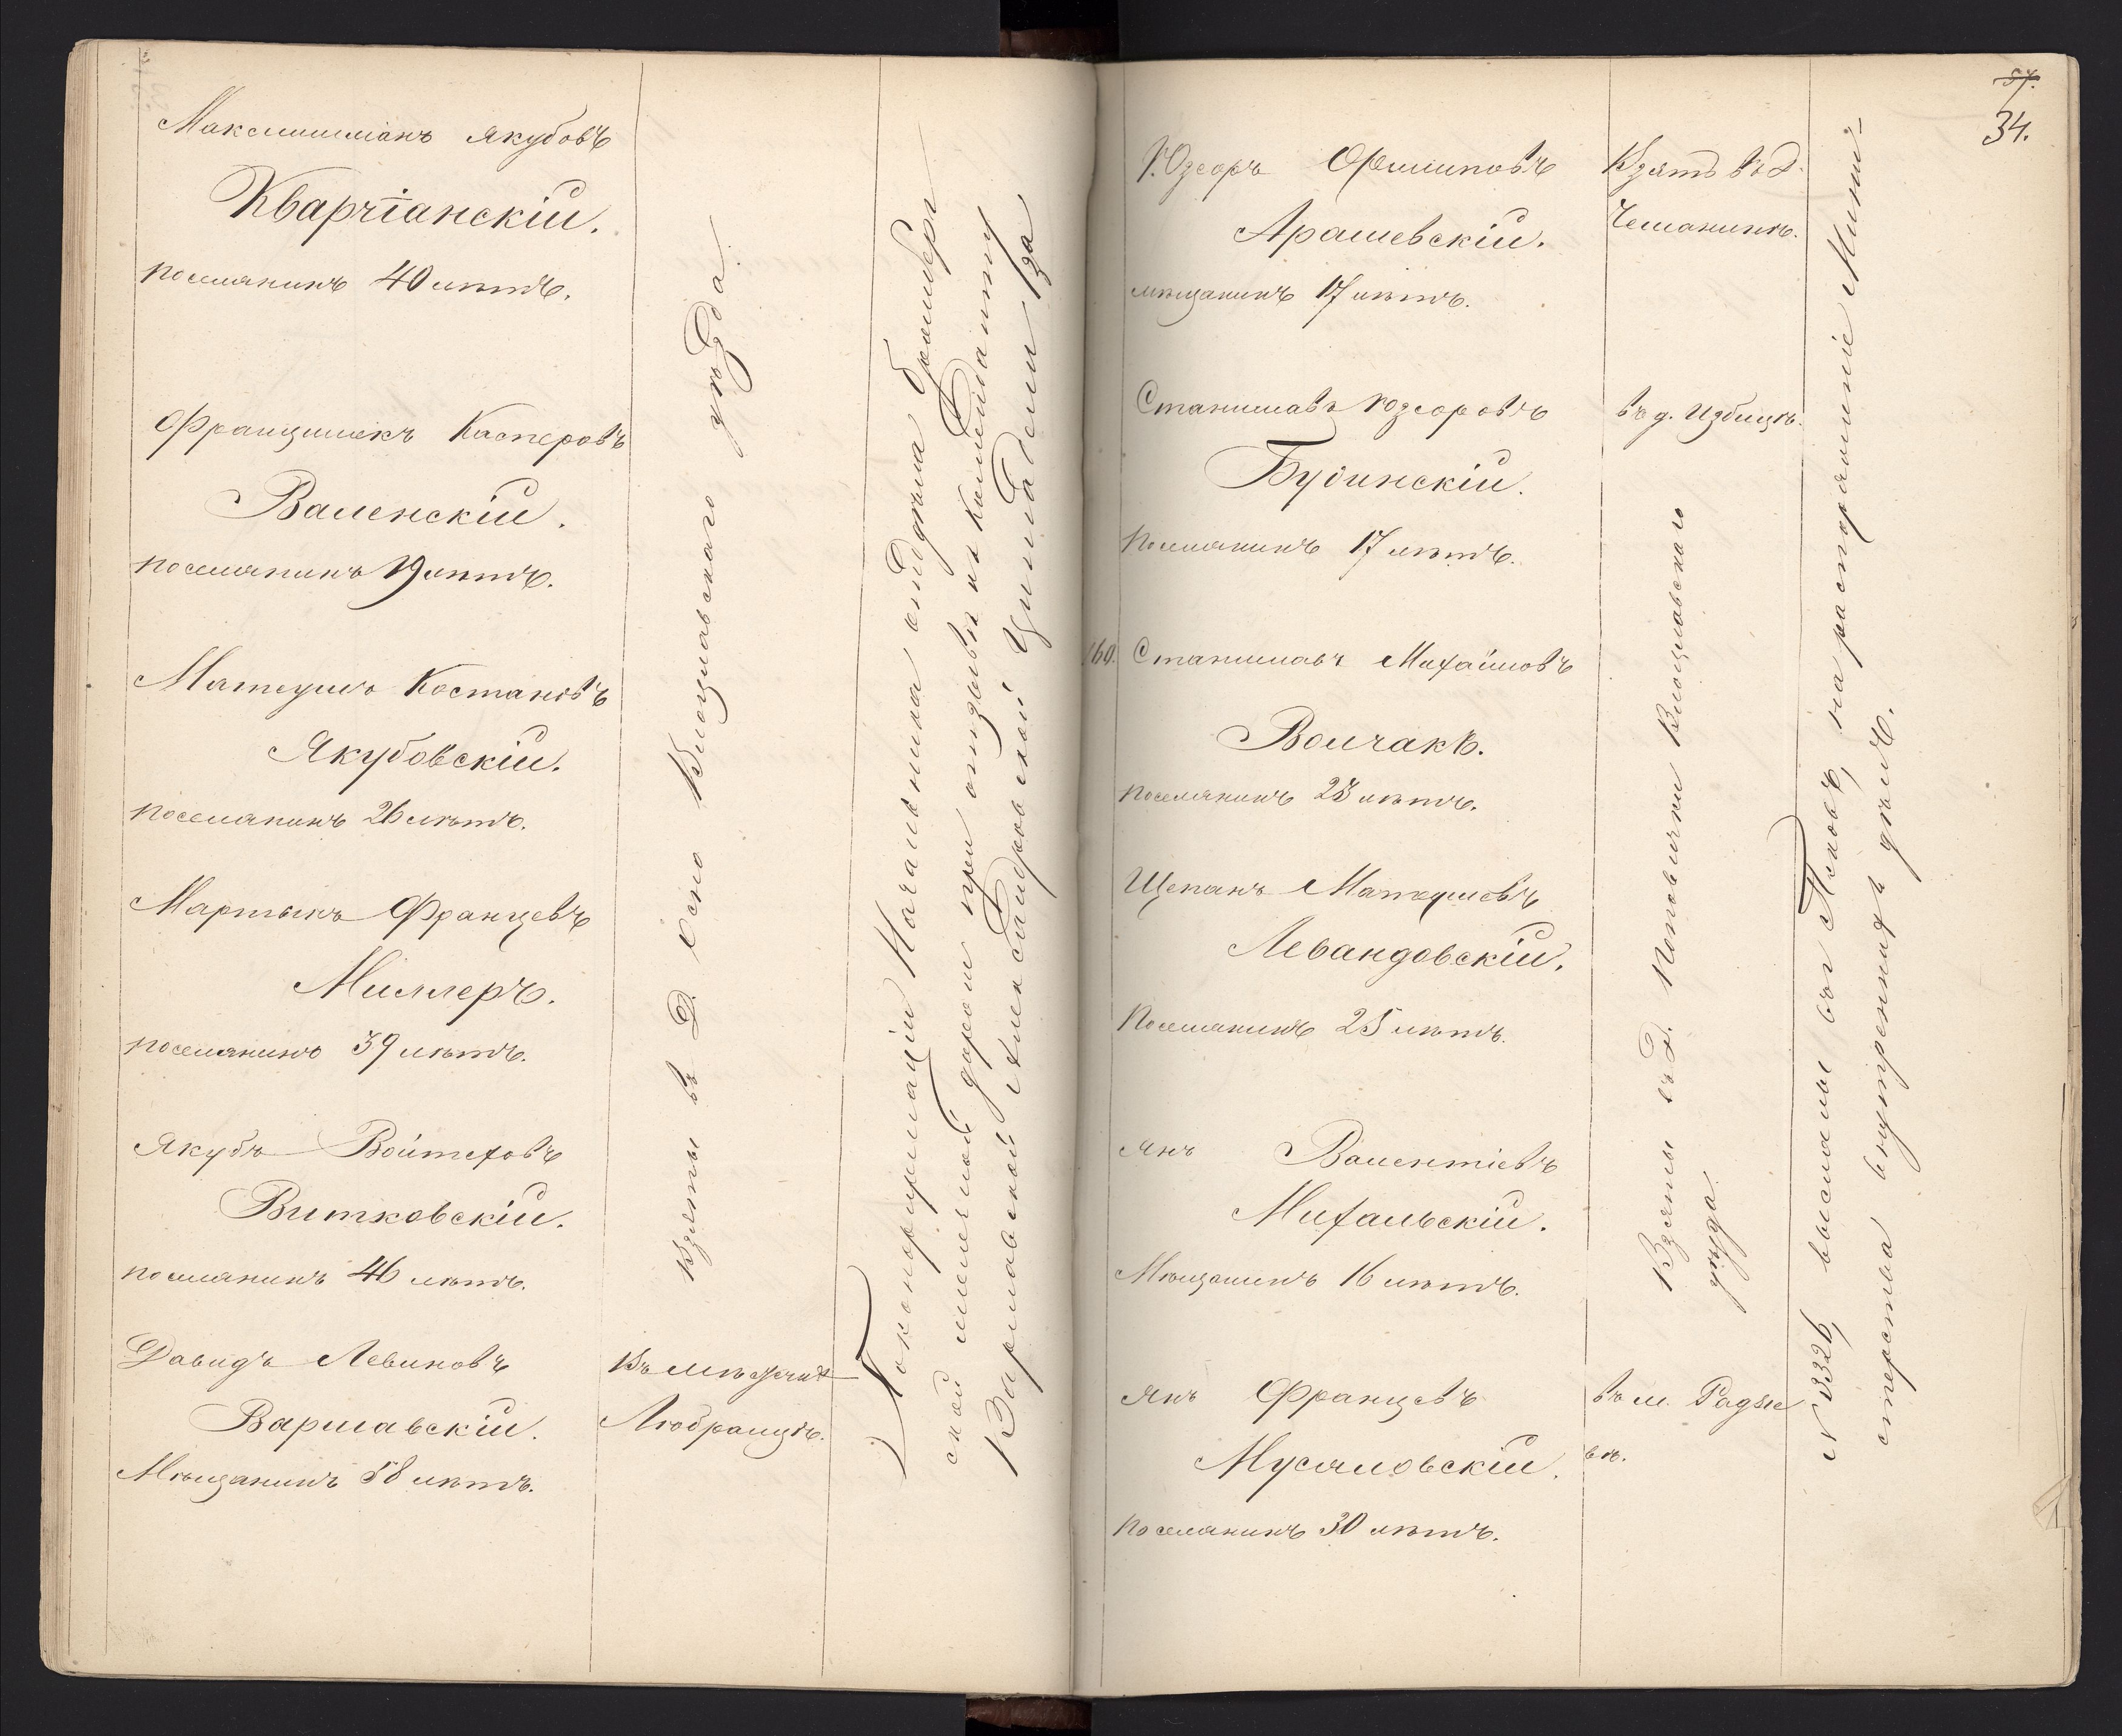 Максимиліанъ Якубовъ
Кварчіанскій.
поселянинъ 40 лѣтъ.
Францишекъ Касперовъ
Валенскій.
поселянинъ 19 лѣтъ.
Матеушъ Костановъ
Якубовскій.
поселянинъ 26 лѣтъ.
Мартынъ Францевъ
Миллеръ.
поселянинъ 39 лѣтъ.
Якубъ Войтеховъ
Витковскій.
поселянинъ 46 лѣтъ.
Давидъ Левиновъ
Варшавскій.
Мѣщанинъ 58 лѣтъ.
Взяты въ д. Влоцлавскаго уѣзда.
Въ мѣстечкѣ
Любранцѣ.
По конфирмаціи Начальника отдѣла бромберг
ской желѣзной дороги при отзывѣ къ коменданту
Варшавской Александровской Цитадели за
57.
34.
Юзефъ Филиповъ
Арашевскій.
мѣщанинъ 17 лѣтъ.
Станиславъ Юзефовъ
Будинскій.
поселянинъ 17 лѣтъ.
160. Станиславъ Михайловъ
Волчакъ.
поселянинъ 23 лѣтъ.
Щепанъ Матеушевъ
Левандовскій.
Поселянинъ 25 лѣтъ.
Янъ Валентіевъ
Михальскій.
Мѣщанинъ 16 лѣтъ.
Янъ Францевъ
Мусяловскій.
поселянинъ 30 лѣтъ.
Взятъ въ д.
въ д. Избицѣ.
Взяты въ д. Влоцлавскаго
уѣзда.
въ м. Радзѣе
вѣ.
N 3326, высланы въ г Псковъ, на распоряженіе Мини-
стерства внутреннихъ дѣлъ.